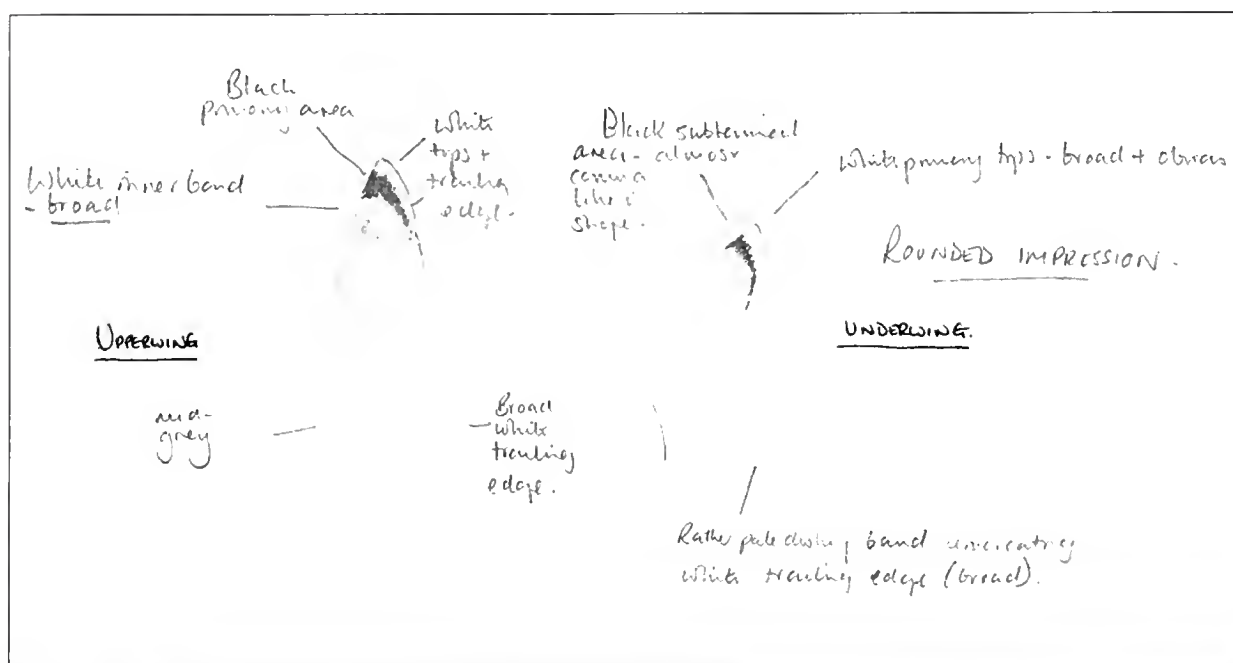 Black
primary area
White
tips +
trailing
edge.
White inner band
- broad
Black subterminal
area - almost
comma
like
shape.
White primary tips - broad + obvious
ROUNDED IMPRESSION.
UPPERWING
UNDERWING.
mid-
grey
Broad
white
trailing
edge.
Rather pale dusky band
white trailing edge (broad).